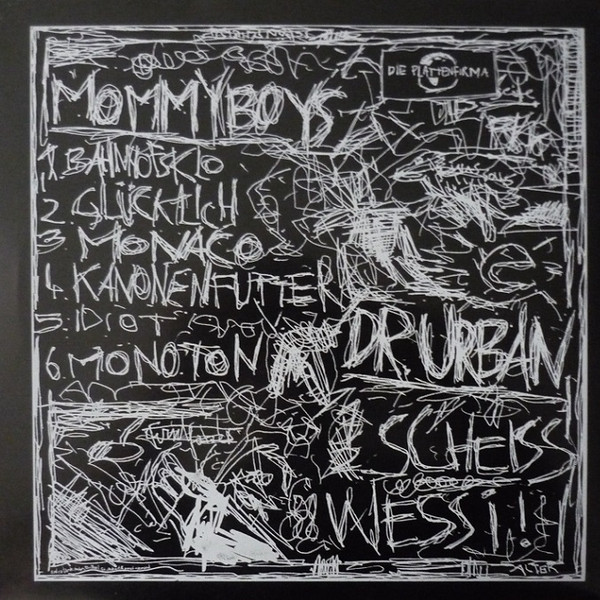 DIE PLATTENFIRMA
MOMMYBOYS
1. BAHNHOFSKLO
2 GLÜCKLICH
3 MONACO
4. KANONENFUTTER
5. IDIOT
6. MONOTON
DR URBAN
SCHEISS
WESSI!
ALTER